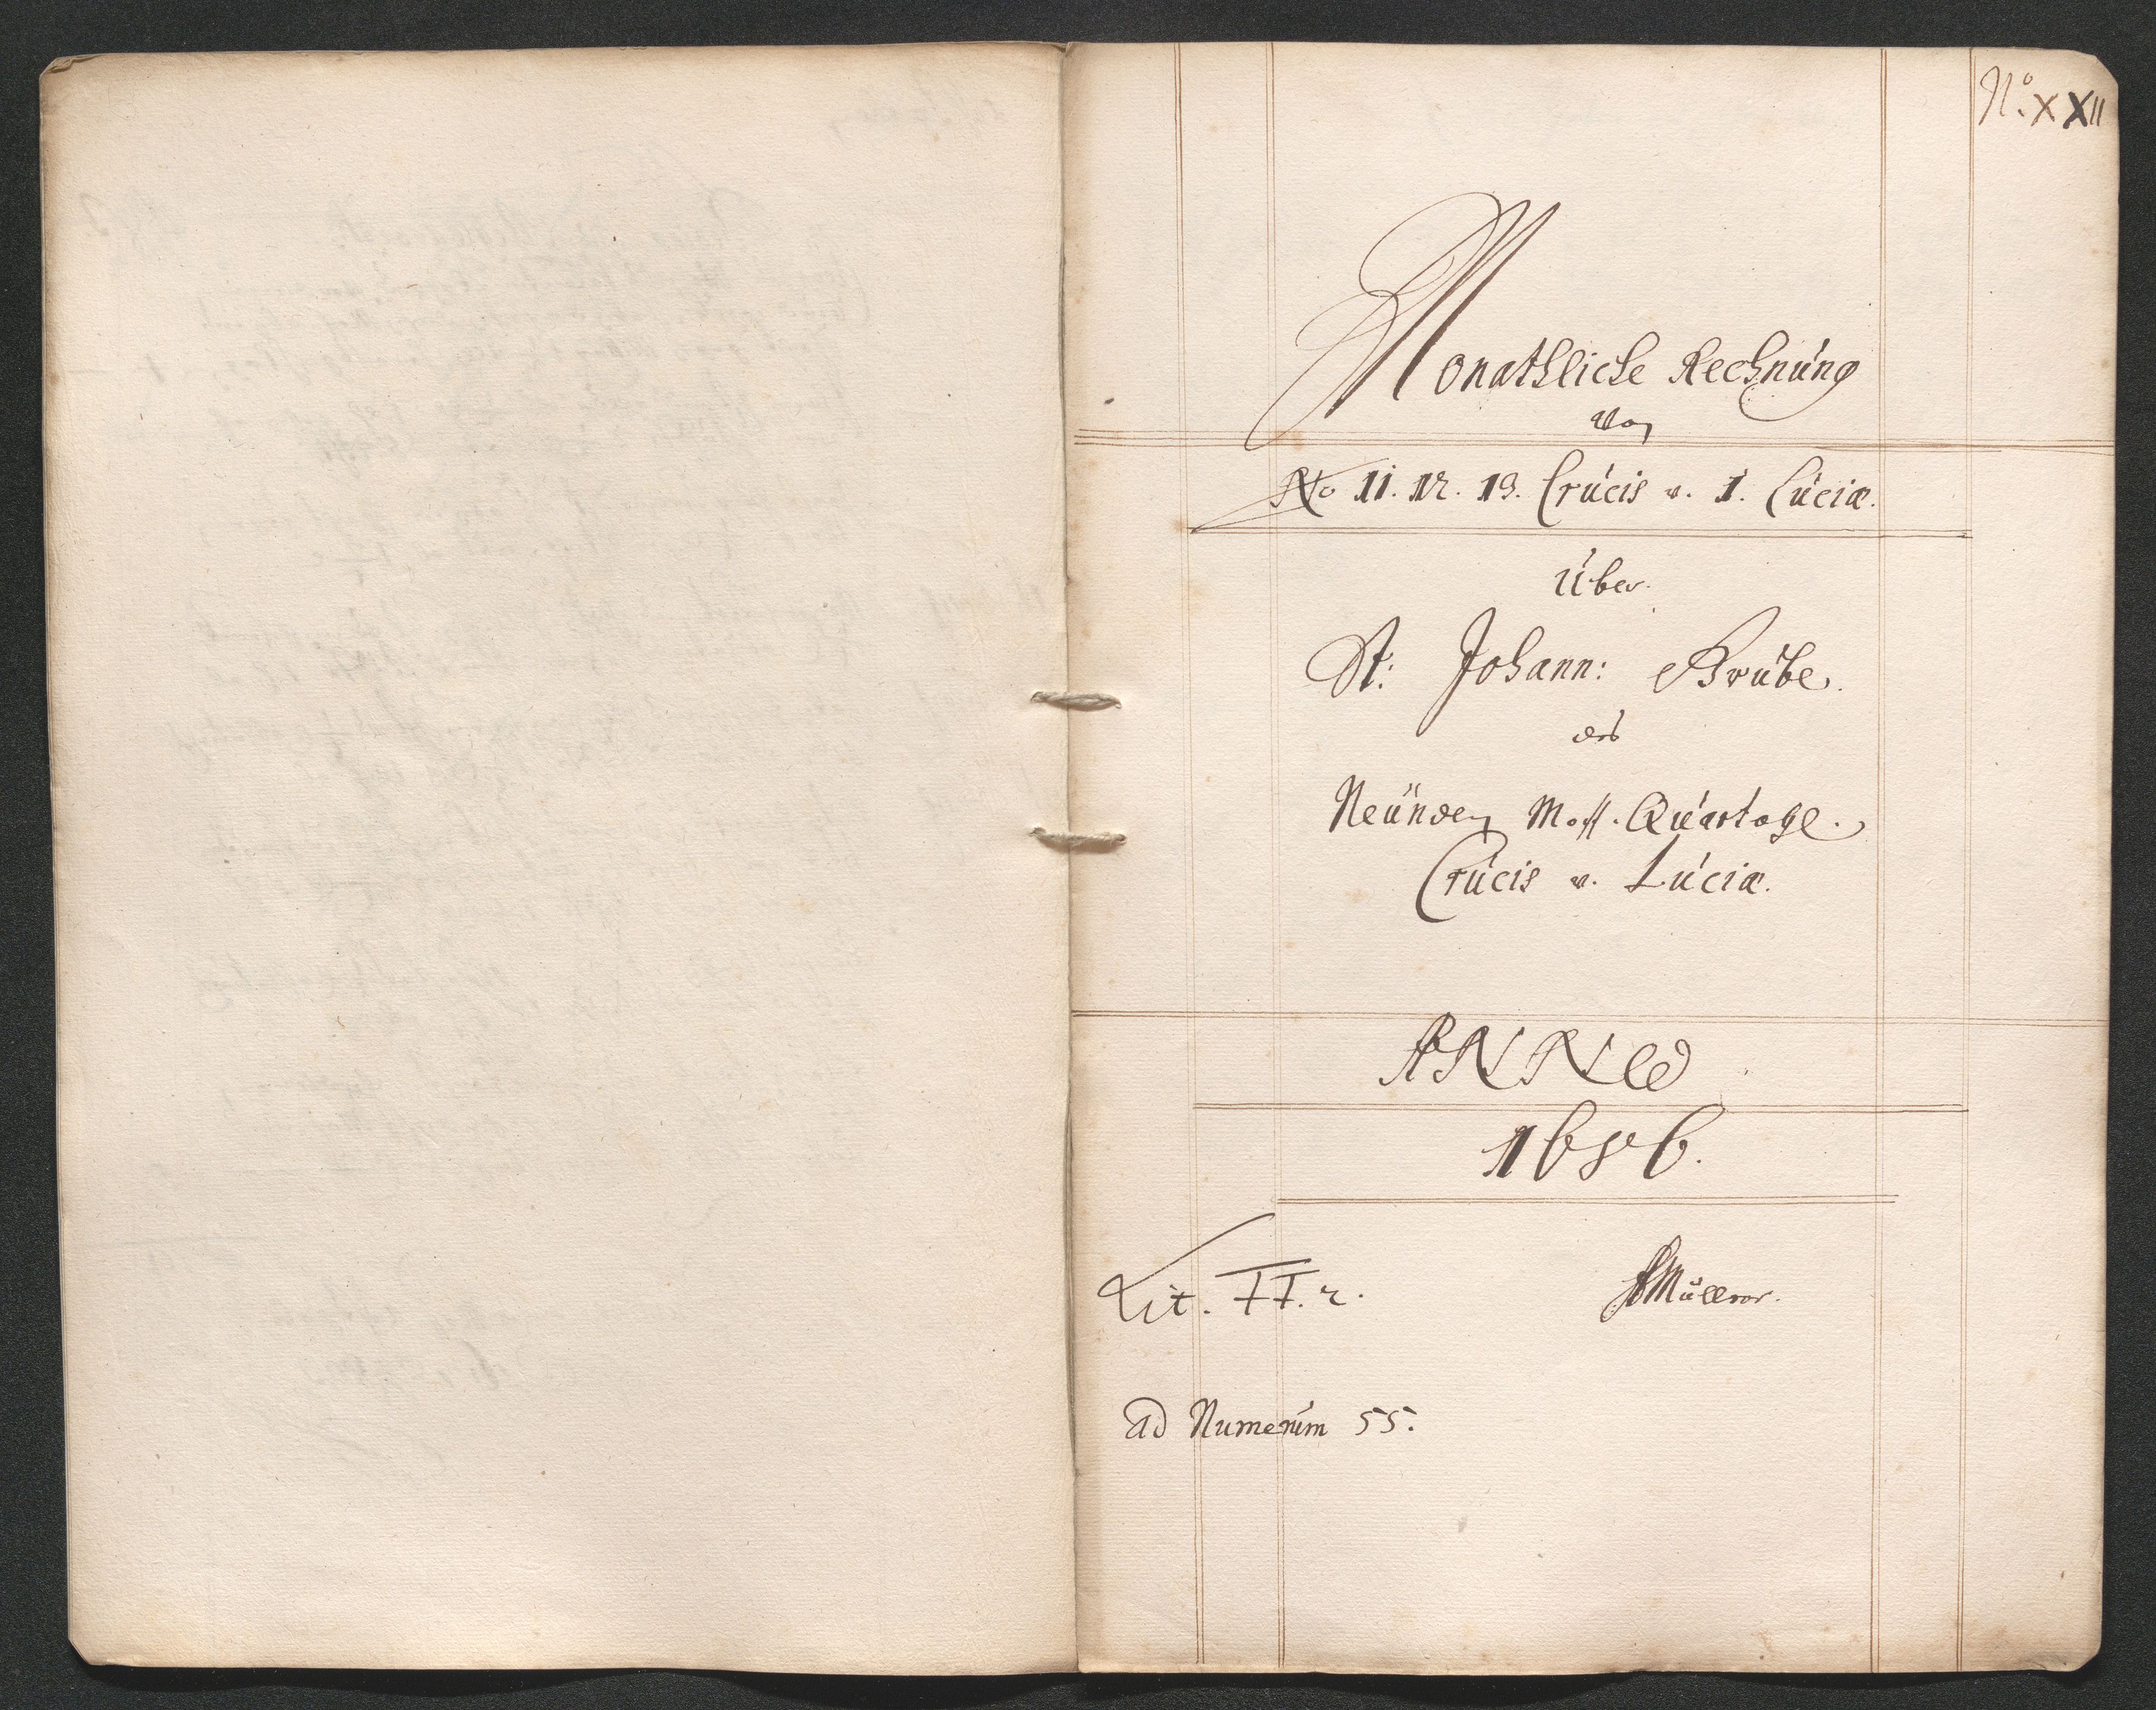 No. XXII
Monathliche Rechnúng
Von
No 11. 12. 13. Crúcis v. 1. Lúciæ.
Über
St: Johann: Grúbe.
des
Neúnden Quartahl.
Crúcis v. Lúciæ.
ANNO
1686.
Lit. FF. 2.
Müller.
ad Numerúm 55.